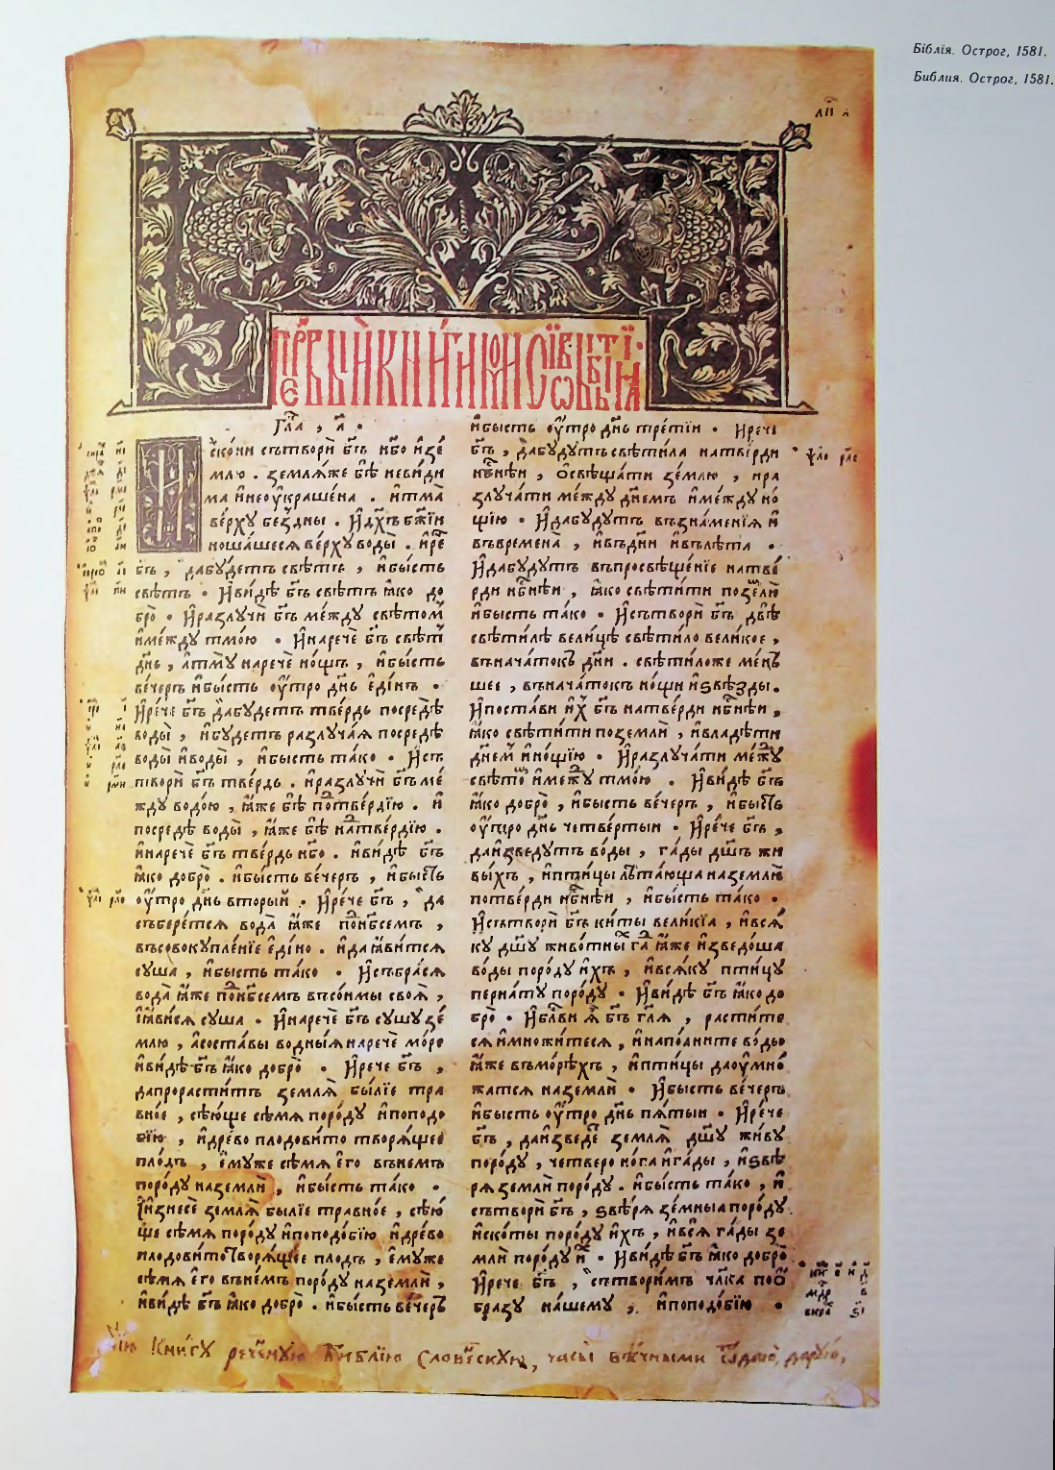 Біблія. Острог, 1581.
Библия. Острог, 1581.
Гл҃а , а҃ .
И҆ско́ни сътворѝ бг҃ъ нб҃о и҆зе́
млю . земля́же бѣ̀ неви́ди
ма и҆неоу҆кра́шена . и҆тма̀
ве́рху бе́здны . и҆дх҃ъ бж҃їи
ноша́шеся ве́рху воды̀ . и҆рѐ
бг҃ъ , да бу́детъ свѣ́тъ , и҆бы́сть
свѣ́тъ . И҆ви́дѣ бг҃ъ свѣ́тъ ꙗ҆́ко до
бро̀ . И҆разлучѝ бг҃ъ ме́жду свѣ́том
и҆ме́жду тмо́ю . И҆наречѐ бг҃ъ свѣ́т
дн҃ь , а҆тму̀ наречѐ но́щь , и҆бы́сть
ве́черъ и҆бы́сть оу҆́тро дн҃ь є҆ди́нъ .
И҆рече бг҃ъ да бу́детъ тве́рдь посредѣ̀
воды̀ , и҆бу́детъ разлуча́я посредѣ̀
воды̀ и҆воды̀ , и҆бы́сть та́ко . И҆съ
творѝ бг҃ъ тве́рдь . и҆разлучѝ бг҃ъ ме́
жду водо́ю , ꙗ҆́же бѣ̀ подтве́рдїю . и҆
посредѣ̀ воды̀ , ꙗ҆́же бѣ̀ надтве́рдїю .
и҆наречѐ бг҃ъ тве́рдь нб҃о . и҆ви́дѣ бг҃ъ
ꙗ҆́ко добро̀ . и҆бы́сть ве́черъ , и҆бы́сть
оу҆́тро дн҃ь вторы́й . И҆рече бг҃ъ , да
събере́тся вода̀ ꙗ҆́же поднб҃семъ ,
въсовокупле́нїе є҆ди́но . и҆да ꙗ҆ви́тся
су́ша , и҆бы́сть та́ко . И҆събра́ся
вода̀ ꙗ҆́же поднб҃семъ въсо́нмы своѧ̀ ,
и҆ꙗ҆ви́ся су́ша . И҆наречѐ бг҃ъ су́шу зе́
млю , а҆соста́вы во́дныя наречѐ мо́ре
и҆ви́дѣ бг҃ъ ꙗ҆́ко добро̀ . И҆рече бг҃ъ ,
да прорасти́тъ земля̀ бы́лїе тра
вно́е , сѣ́юще сѣ́мя поро́ду и҆поподо
бїю , и҆дре́во плодови́то творя́щее
пло́дъ , є҆му́же сѣ́мя є҆го̀ въне́мъ
поро́ду наземлѝ , и҆бы́сть та́ко .
И҆изнесѐ земля̀ бы́лїе травно́е , сѣ́ю
ще сѣ́мя поро́ду и҆поподо́бїю и҆дре́во
плодови́то творя́щее пло́дъ , є҆му́же
сѣ́мя є҆го̀ въне́мъ поро́ду наземлѝ ,
и҆ви́дѣ бг҃ъ ꙗ҆́ко добро̀ . и҆бы́сть ве́черъ
и҆бы́сть оу҆́тро дн҃ь тре́тїи . И҆рече
бг҃ъ , да бу́дутъ свѣти́ла натве́рди
нб҃нѣи , ѻ҆свѣща́ти зе́млю , и҆ра
злуча́ти ме́жду дне́мъ и҆ме́жду но́
щїю . И҆да бу́дутъ въ зна́менїя и҆
въвремена̀ , и҆въдни и҆вълѣ́та .
И҆да бу́дутъ въпросвѣще́нїе натве́
рди нб҃нѣи , ꙗ҆́ко свѣти́ти поземлѝ
и҆бы́сть та́ко . И҆сътворѝ бг҃ъ двѣ̀
свѣти́лѣ вели́цѣ свѣти́ло вели́кое ,
въ нача́токъ дни . свѣти́ло же ме́нь
шее , въ нача́токъ но́щи и҆ѕвѣ́зды .
И҆поста́ви и҆́х бг҃ъ натве́рди нб҃нѣи ,
ꙗ҆́ко свѣти́ти поземлѝ , и҆владѣ́ти
дне́м и҆но́щїю . И҆разлуча́ти ме́жду
свѣ́том и҆между тмо́ю . И҆ви́дѣ бг҃ъ
ꙗ҆́ко добро̀ , и҆бы́сть ве́черъ , и҆бы́сть
оу҆́тро дн҃ь четве́ртыи . И҆рече бг҃ъ ,
да и҆зведу́тъ во́ды , га́ды дш҃ъ жи
вы́хъ , и҆пти́цы лѣта́юща наземлѝ
потве́рди нб҃нѣи , и҆бы́сть та́ко .
И҆сътворѝ бг҃ъ ки́ты вели́кїа , и҆вся́
ку дш҃у живо́тных га́д ꙗ҆́же и҆зведо́ша
во́ды поро́ду и҆́хъ , и҆вся́ку пти́цу
перна́ту поро́ду . И҆ви́дѣ бг҃ъ ꙗ҆́ко до
бро̀ . И҆бл҃ви ѧ҆̀ бг҃ъ гл҃я , расти́те
ся и҆мно́житеся , и҆напо́лните во́ды
ꙗ҆́же въ мо́рѣхъ , и҆пти́цы да оу҆мно́
жатся наземлѝ . И҆бы́сть ве́черъ
и҆бы́сть оу҆́тро дн҃ь пя́тыи . И҆рече
бг҃ъ , да и҆зведе́т земля̀ дш҃у жи́ву
поро́ду , четверо но́га и҆га́ды , и҆ѕвѣ́
ря землѝ поро́ду . и҆бы́сть та́ко , и҆
сътворѝ бг҃ъ , ѕвѣ́ря зе́мныа поро́ду
и҆ско́ты поро́ду и҆́хъ , и҆вся̀ га́ды зе
млѝ поро́ду и҆́х . И҆ви́дѣ бг҃ъ ꙗ҆́ко добро̀
И҆рече бг҃ъ , сътвори́мъ чл҃ка поо́
бразу на́шему , и҆поподо́бїю .
Книгу реченную Библїю Словенскую,